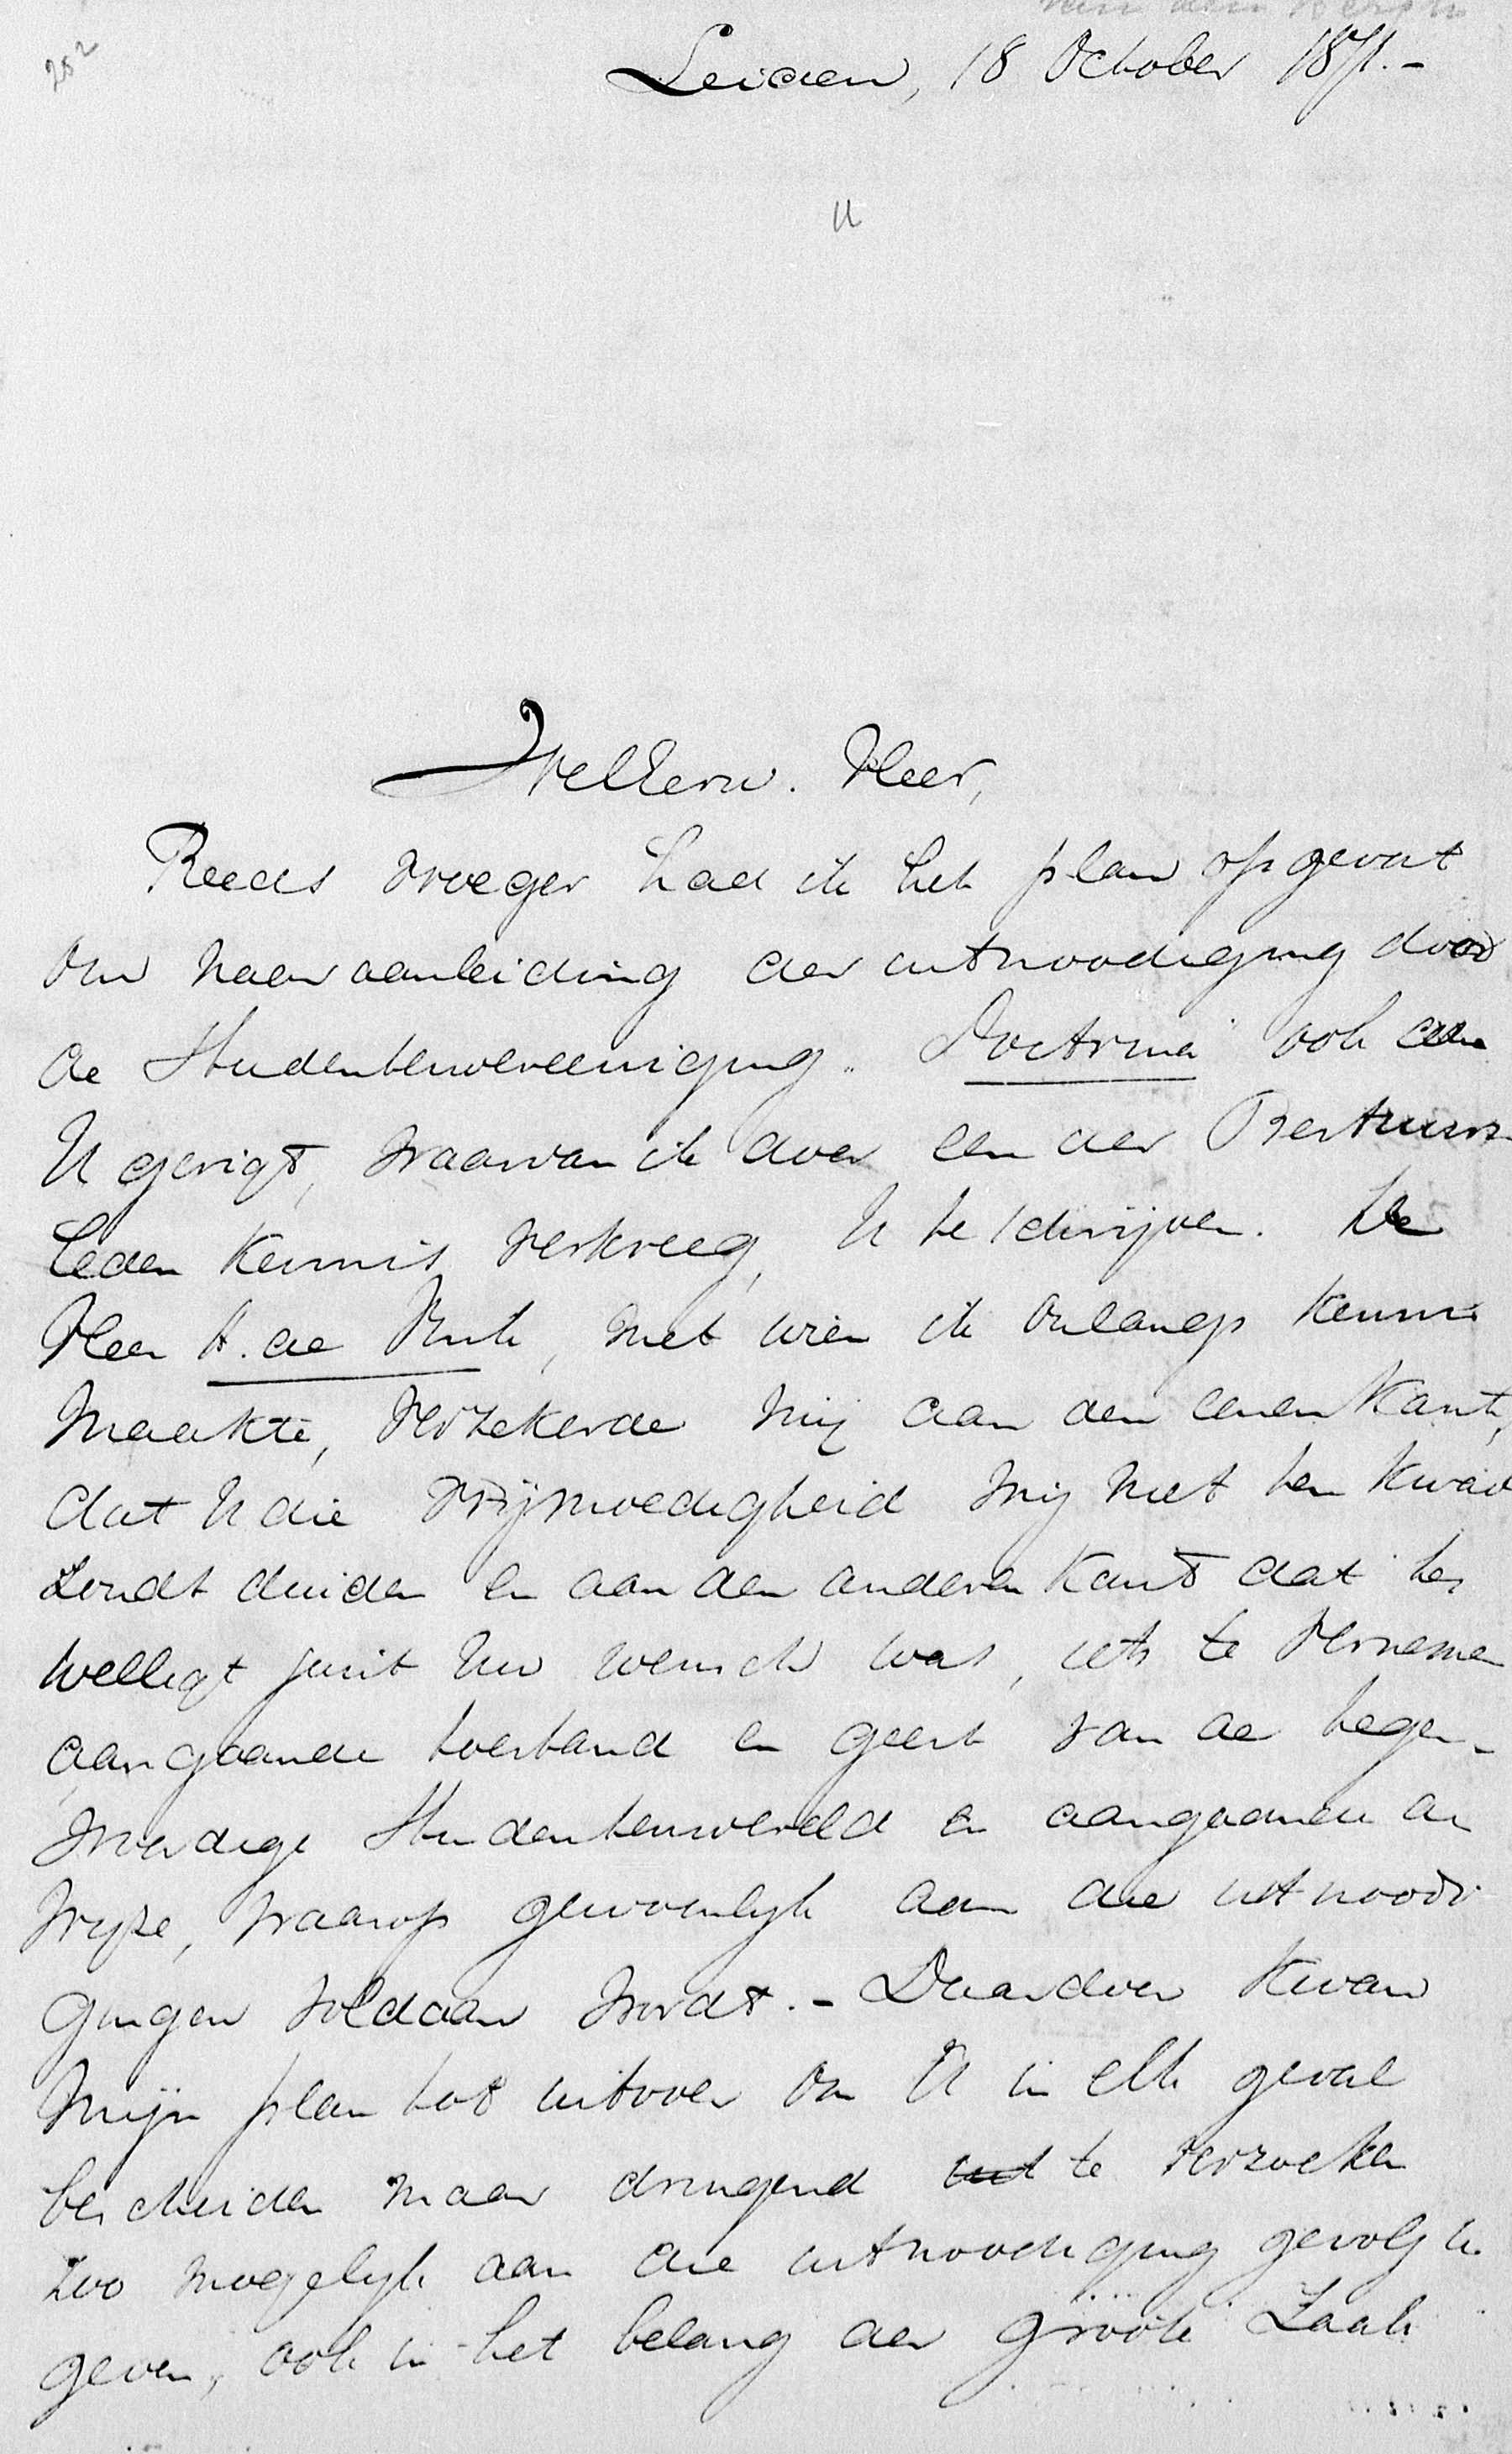 252
Leiden, 18 October 1871.-
WelEerw. Heer,
Reeds vroeger had ik het plan opgevat
om naar aanleiding der uitnoodiging door
de Studentenvereeniging „Doctrina" ook aan
U gerigt, waarvan ik door een der Bestuurs-
leden kennis verkreeg, U te schrijven. De
Heer A. de , met wien ik onlangs kennis
maakte, verzekerde mij aan den eenen kant,
dat U die vrijmoedigheid mij niet ten kwade
zoudt duiden en aan den anderen kant dat het
welligt juist Uw wensch was, iets te vernemen
aangaande toestand en geest van de tegen-
woordige Studentenwereld en aangaande de
wijze, waarop gewoonlijk aan die uitnoodi-
gingen voldaan wordt. - Daardoor kwam
mijn plan tot uitvoer om U in elk geval
bescheiden maar dringend uit te verzoeken
zoo mogelijk aan die uitnoodiging gevolg te
geven, ook in het belang der groote Zaak